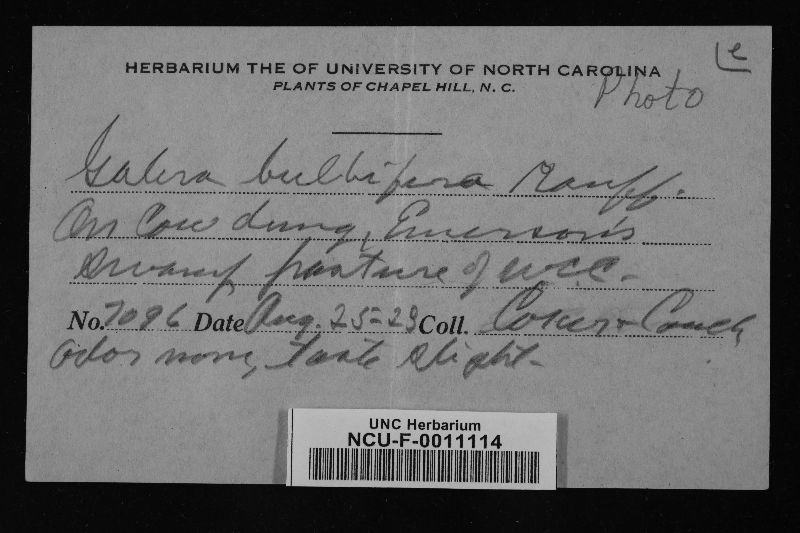 e
HERBARIUM THE OF UNIVERSITY OF NORTH CAROLINA
PLANTS OF CHAPEL HILL, N. C.
Photo
Galera bulbifera Kauff.
On cow dung, Emerson's
Swamp, pasture of W.C.C.
No. 7096 Date Aug. 25-23 Coll. Coker & Couch
Odor none, taste slight.
UNC Herbarium
NCU-F-0011114